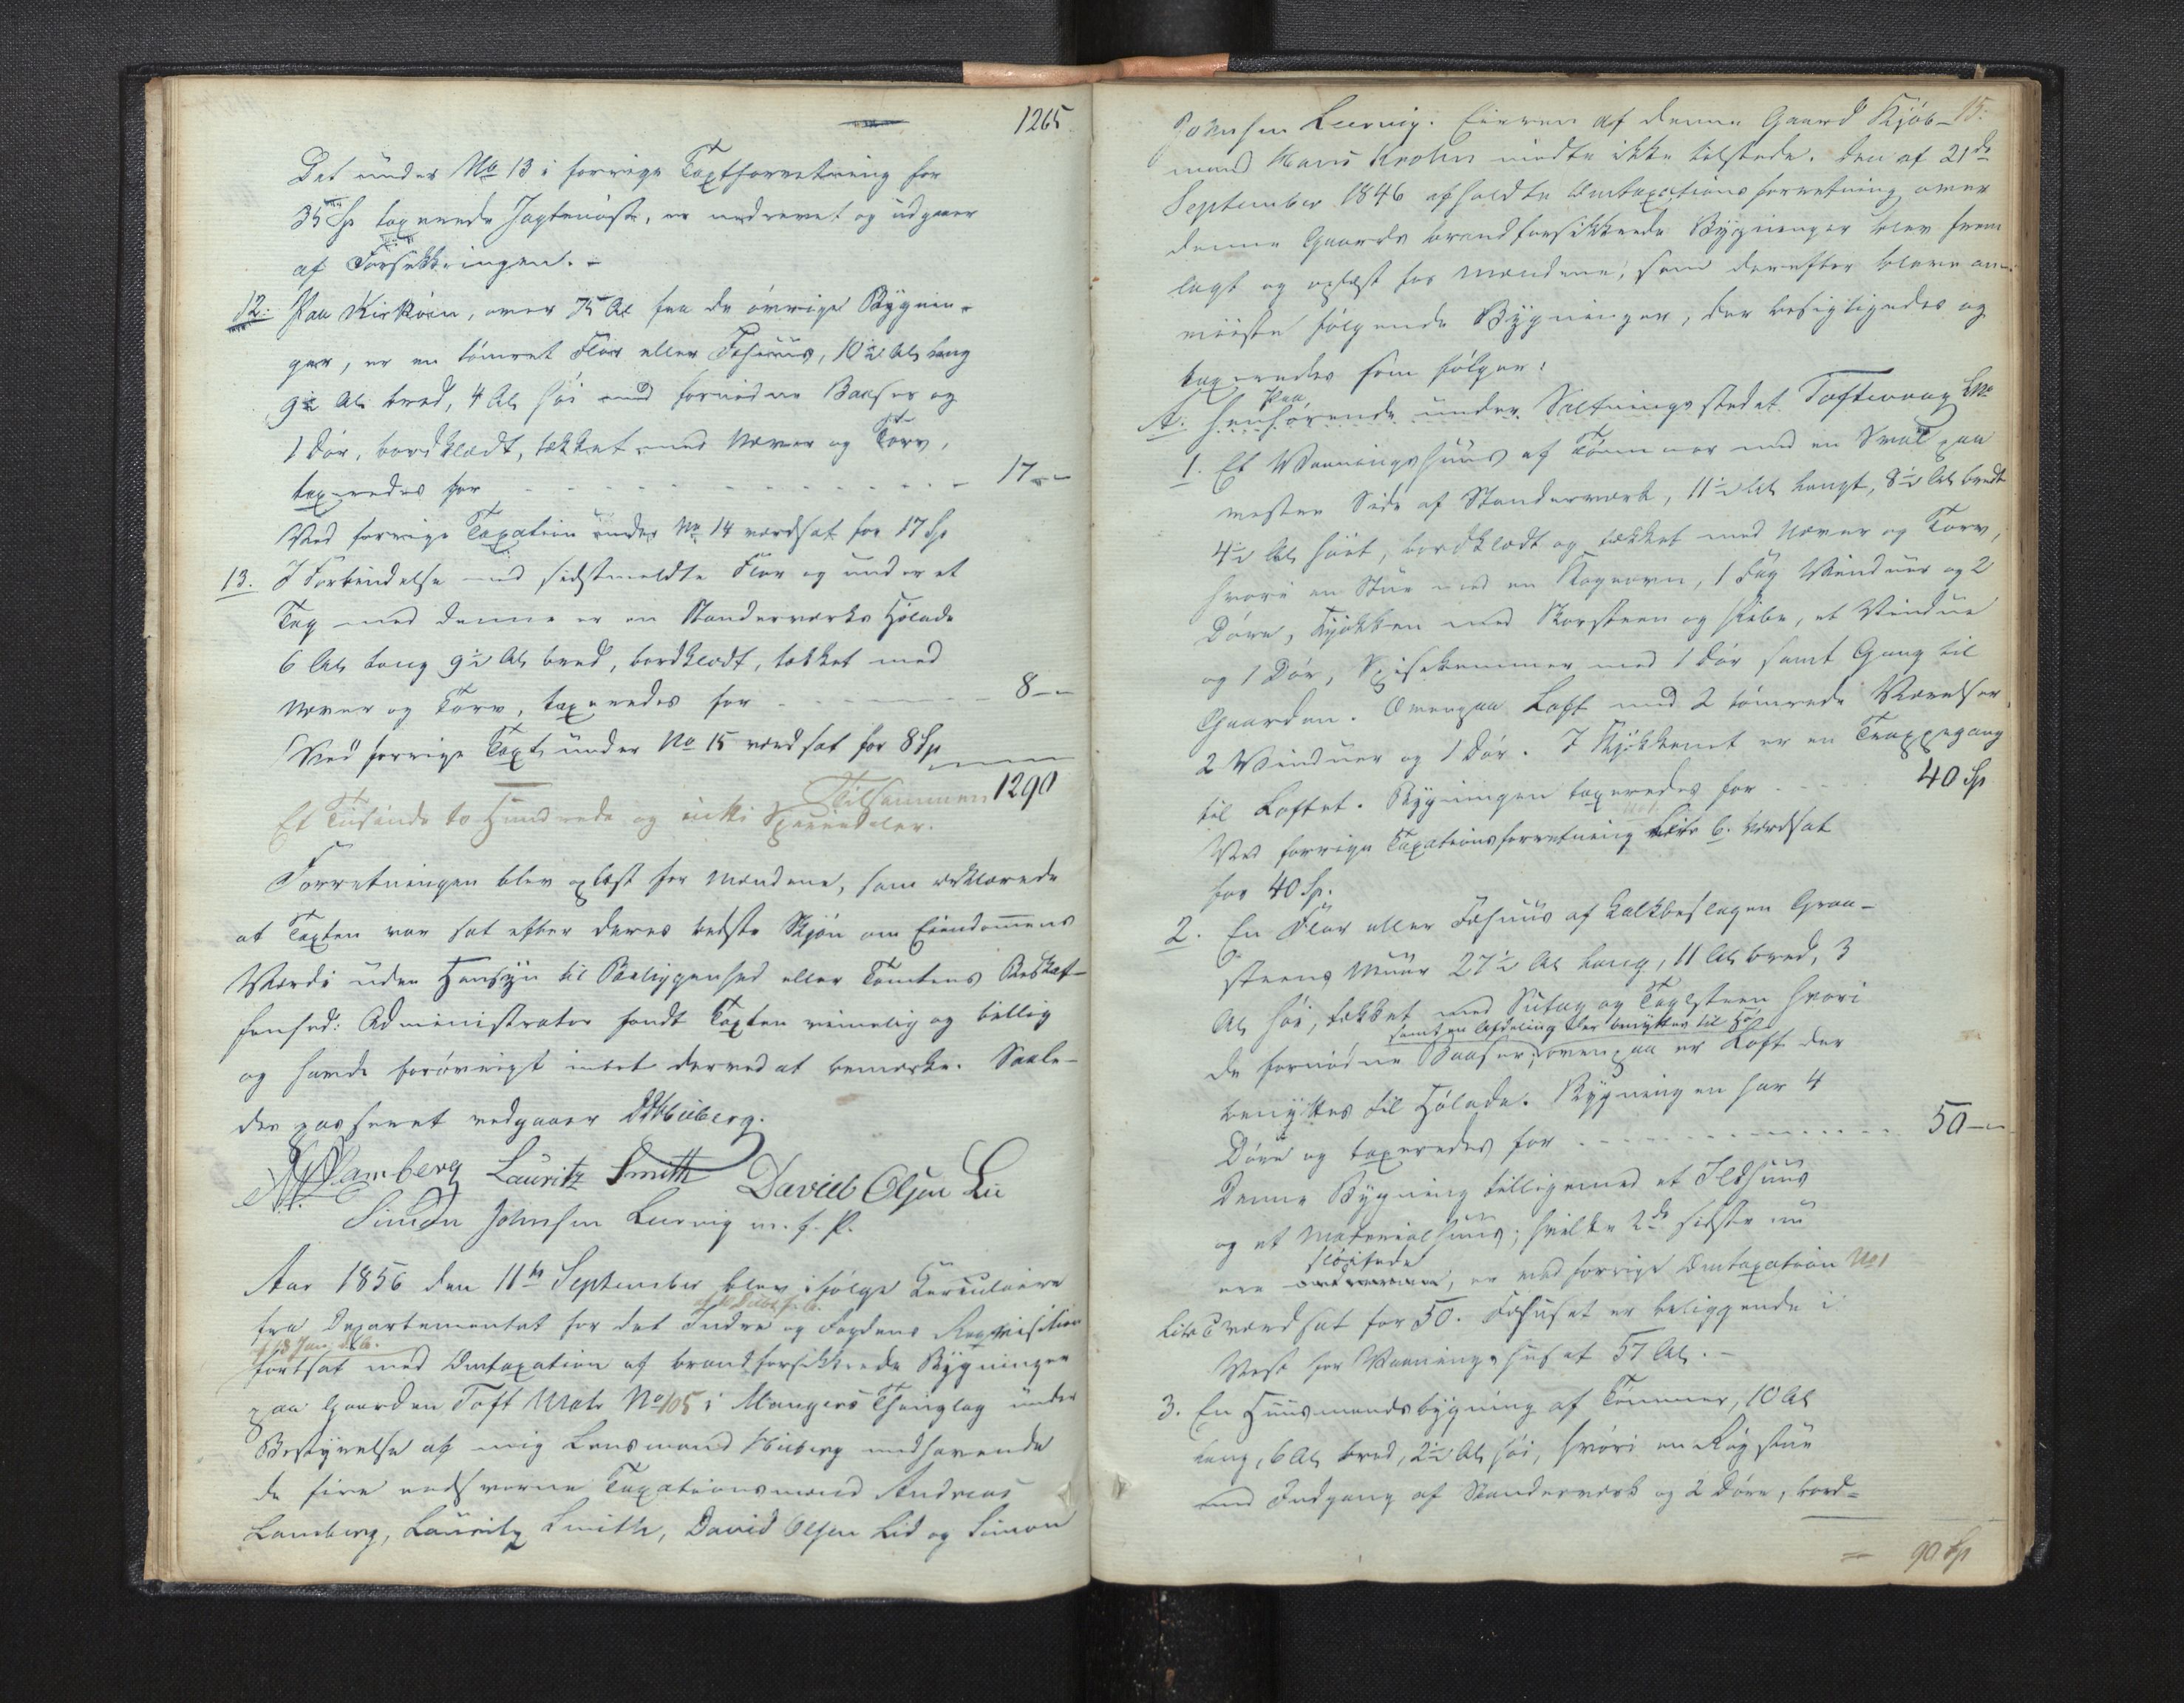 1265.
Det under No 13 i forrige Taxtforretning for
35 Sp taxerede Jagtenøst, er nedrevet og udgaaer
af Forsikkringen. -
12. Paa Kirkøen, over 75 Al fra de øvrige Bygnin-
ger, er en tømret Flor eller Fæhuus, 10½ Al lang
9½ Al bred, 4 Al høi med fornødne Baaser og
1 Dør, bordklædt, tækket med Næver og Torv,
taxeredes for - - - - - - 17 - -
Ved forrige Taxation under No 14 værdsat for 17 Sp
13. I Forbindelse med sidstmeldte Flor og under et
Tag med denne er en Standerværks Høladе
6 Al lang 9½ Al bred, bordklædt, tækket med
Næver og Torv, taxeredes for - - - 8 - -
Ved forrige Taxt under No 15 værdsat for 8 Sp
Tilsammen 1290
Et Tusinde to Hundrede og nitti Speciedaler.
Forretningen blev oplæst for Mændene, som erklærede
at Taxten var sat efter deres bedste Skjøn om Eiendommens
Værdi uden Hensyn til Beliggenhed eller Tomtens Beskaf-
fenhed: Administrator fandt Taxten rimelig og billig
og havde forøvrigt intet derved at bemærke. Saale-
des passeret vedgaaer
Lamberg Lauritz Smith David Olsen Lie
Simon Johnsen Leervig m. f. P.
Aar 1856 den 11te September blev ifølge Circulaire
fra Departementet for det Indre og Fogdens Reqvisition
af 18 Jan. d. A.
fortsat med Omtaxation af brandforsikkrede Bygninger
paa Gaarden Toft Matr No 105 i Mangers Thinglag under
Bestyrelse af mig Lensmand medhavende
de fire eedsvorne Taxationsmænd Andreas
Lamberg, Lauritz Smith, David Olsen Lid og Simon
15.
Johnsen Leervig. Eieren af denne Gaard Kjøb-
mand Hans Krohn mødte ikke tilstede. Den af 21de
September 1846 afholdte Omtaxationsforretning over
denne Gaards brandforsikkrede Bygninger blev frem
lagt og oplæst for Mændene, som derefter bleve an-
viiste følgende Bygninger, der besigtigedes og
taxeredes som følger:
Paa
A. henhørende under Saltningsstedet Toftevaag
1. Et Vaaningshuus af Tømmer med en Sval paa
vestre Side af Standerværk, 11½ Al langt, 8½ Al bredt
4½ Al høit, bordklædt og tækket med Næver og Torv,
hvori en Stue med en Kogeovn, 1 Fag Vinduer og 2
Døre, Kjøkken med Skorsteen og Pibe, et Vindue
og 1 Dør, Spisekammer med 1 Dør samt Gang til
Gaarden. Ovenpaa Loft med 2 tømrede Værelser,
2 Vinduer og 1 Dør. I Kjøkkenet er en Trappegang
til Loftet. Bygningen taxeredes for - - - 40 Sp
Ved forrige Taxationsforretning Litr b. værdsat
for 40 Sp.
2. En Flor eller Fæhuus af kalkbeslagen Graa-
steens Muur 27½ Al lang, 11 Al bred, 3
Al høi, tækket med Sutag og Taglsteen hvori
samt en Afdeling der benyttes til Hø
de fornødne Baaser; ovenpaa er Loft der
benyttes til Hølade. Bygningen har 4
Døre og taxeredes for - - - - - 50 - -
Denne Bygning tilligemed et Ildhuus
og et Materialhuus; hvilke 2de sidste nu
sløifede
ere, er ved forrige Omtaxation No 1
Litr C værdsat for 50. Fæhuset er beliggende i
Vest for Vaaningshuset 57 Al. -
3. En Huusmandsbygning af Tømmer, 10 Al
lang, 6 Al bred, 2½ Al høi, hvori en Røgstue
med Indgang af Standerværk og 2 Døre, bord-
= 90 Sp